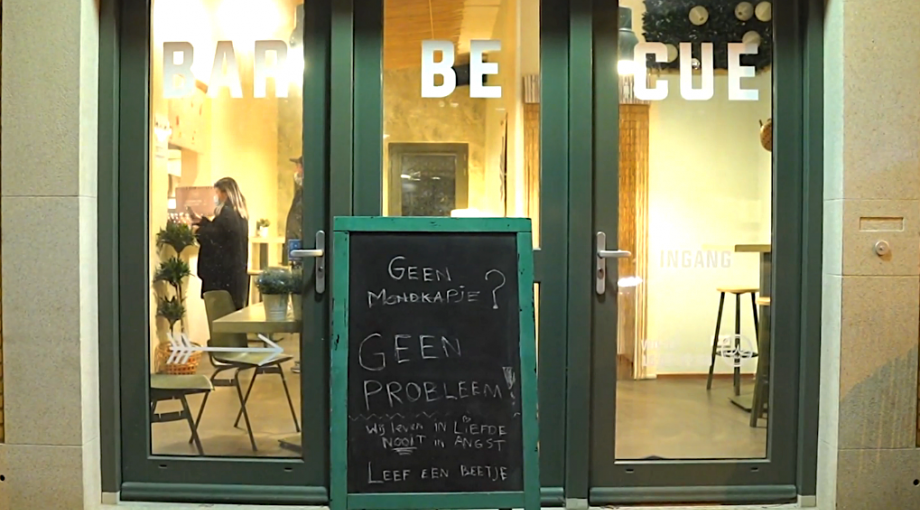 BAR BE CUE
INGANG
GEEN
MONDKAPJE?
GEEN
PROBLEEM!
Wij leven IN LIEFDE
NOOIT in ANGST
LEEF EEN BEETJE